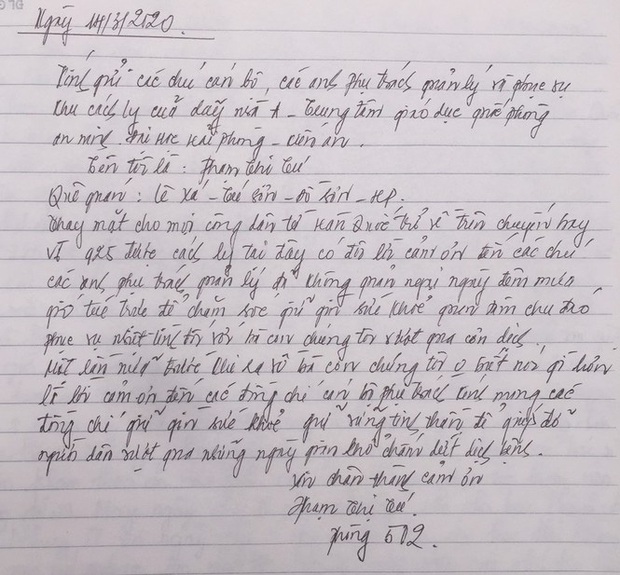 Ngày 14/3/2020.
Kính gửi các chú cán bộ, các anh phụ trách quản lý và phục vụ
khu cách ly của dãy nhà A - Trung tâm giáo dục quốc phòng
an ninh. Đại học Hải Phòng - Kiến An.
Tên tôi là: Phạm Thị Tú
Quê quán: Lê Xá - Tú Sơn - Đồ Sơn - HP.
Thay mặt cho mọi công dân từ Hàn Quốc trở về trên chuyến bay
VJ 925 được cách ly tại đây có đôi lời cảm ơn đến các chú
các anh phụ trách quản lý đã không quản ngại ngày đêm mưa
gió túc trực để chăm sóc giữ gìn sức khoẻ quan tâm chu đáo
phục vụ nhiệt tình đối với bà con chúng tôi vượt qua cơn dịch.
Một lần nữa trước khi xa về bà con chúng tôi o biết nói gì hơn
là lời cảm ơn đến các đồng chí cán bộ phụ trách kính mong các
đồng chí giữ gìn sức khoẻ giữ vững tinh thần để giúp đỡ
người dân vượt qua những ngày gian khó chấm dứt dịch bệnh.
Xin chân thành cảm ơn
Phạm Thị Tú.
Phòng 502.